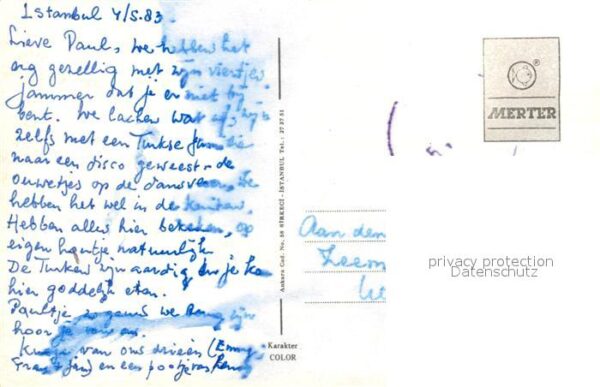 Istanbul 4/5.83.
Lieve Paul, we hebben het
erg gezellig met zijn viertjes
jammer dat je er niet bij
bent. We lachen wat af, zijn
zelfs met een Turkse familie
naar een disco geweest - de
ouwetjes op de dansvloer. We
hebben het wel in de
Hebben alles hier bekeken, op
eigen houtje natuurlijk
De Turken zijn aardig en je kan
hier goddelijk eten.
Paultje, zo gauw we terug zijn
hoor je van ons.
van ons drieën (Emmy,
en een pootje van
Ankara Cad. No. 58 SİRKECİ - İSTANBUL Tel.: 27 27 51
Karakter
COLOR
MERTER
®
Aan den
privacy protection
Datenschutz